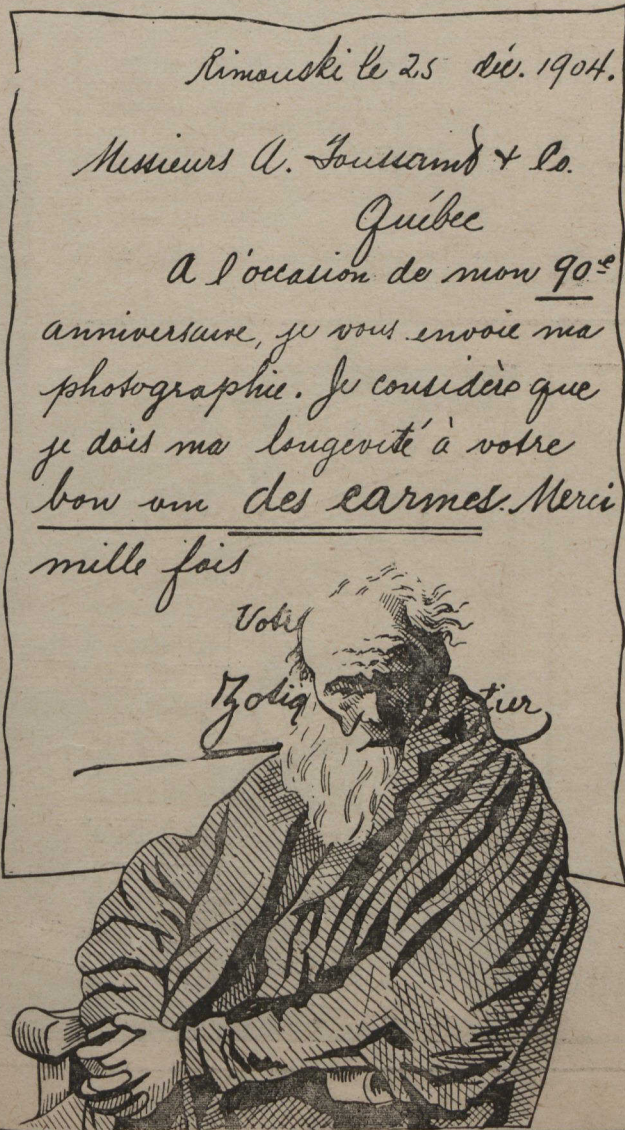 Rimouski le 25 déc. 1904.
Messieurs A. Toussaint & Co.
Québec
A l'occasion de mon 90e
anniversaire, je vous envoie ma
photographie. Je considère que
je dois ma longevité à votre
bon vin des carmes. Merci
mille fois
Votre
Zotiq tier